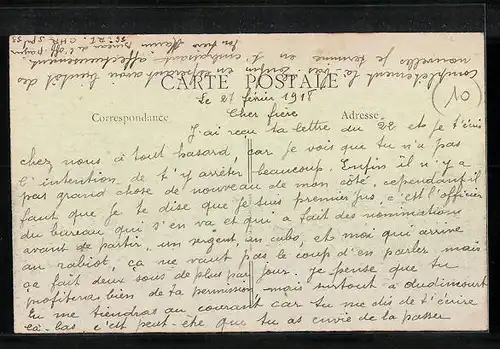 CARTE POSTALE
Correspondance
Adresse
10
Le 27 février 1918
Cher frère
J'ai reçu ta lettre du 22 et je t'écris
chez nous à tout hasard, car je vois que tu n'a pas
l'intention de t'y arrêter beaucoup. Enfin il n'y a
pas grand chose de nouveau de mon côté, cependant il
faut que je te dise que je suis premier jus, c'est l'officier
du bureau qui s'en va et qui a fait des nominations
avant de partir, un sergent, un cabo, et moi qui arrive
au rabiot, ça ne vaut pas le coup d'en parler mais
ça fait deux sous de plus par jour. Je pense que tu
profiteras bien de ta permission mais surtout à
tu me tiendras au courant car tu me dis de t'écrire
là-bas c'est peut-être que tu as envie de la passer
complètement là bas. Enfin
nouvelles je termine en t'embrassant affectueusement.
en espérant avoir bientôt de
Ton frère